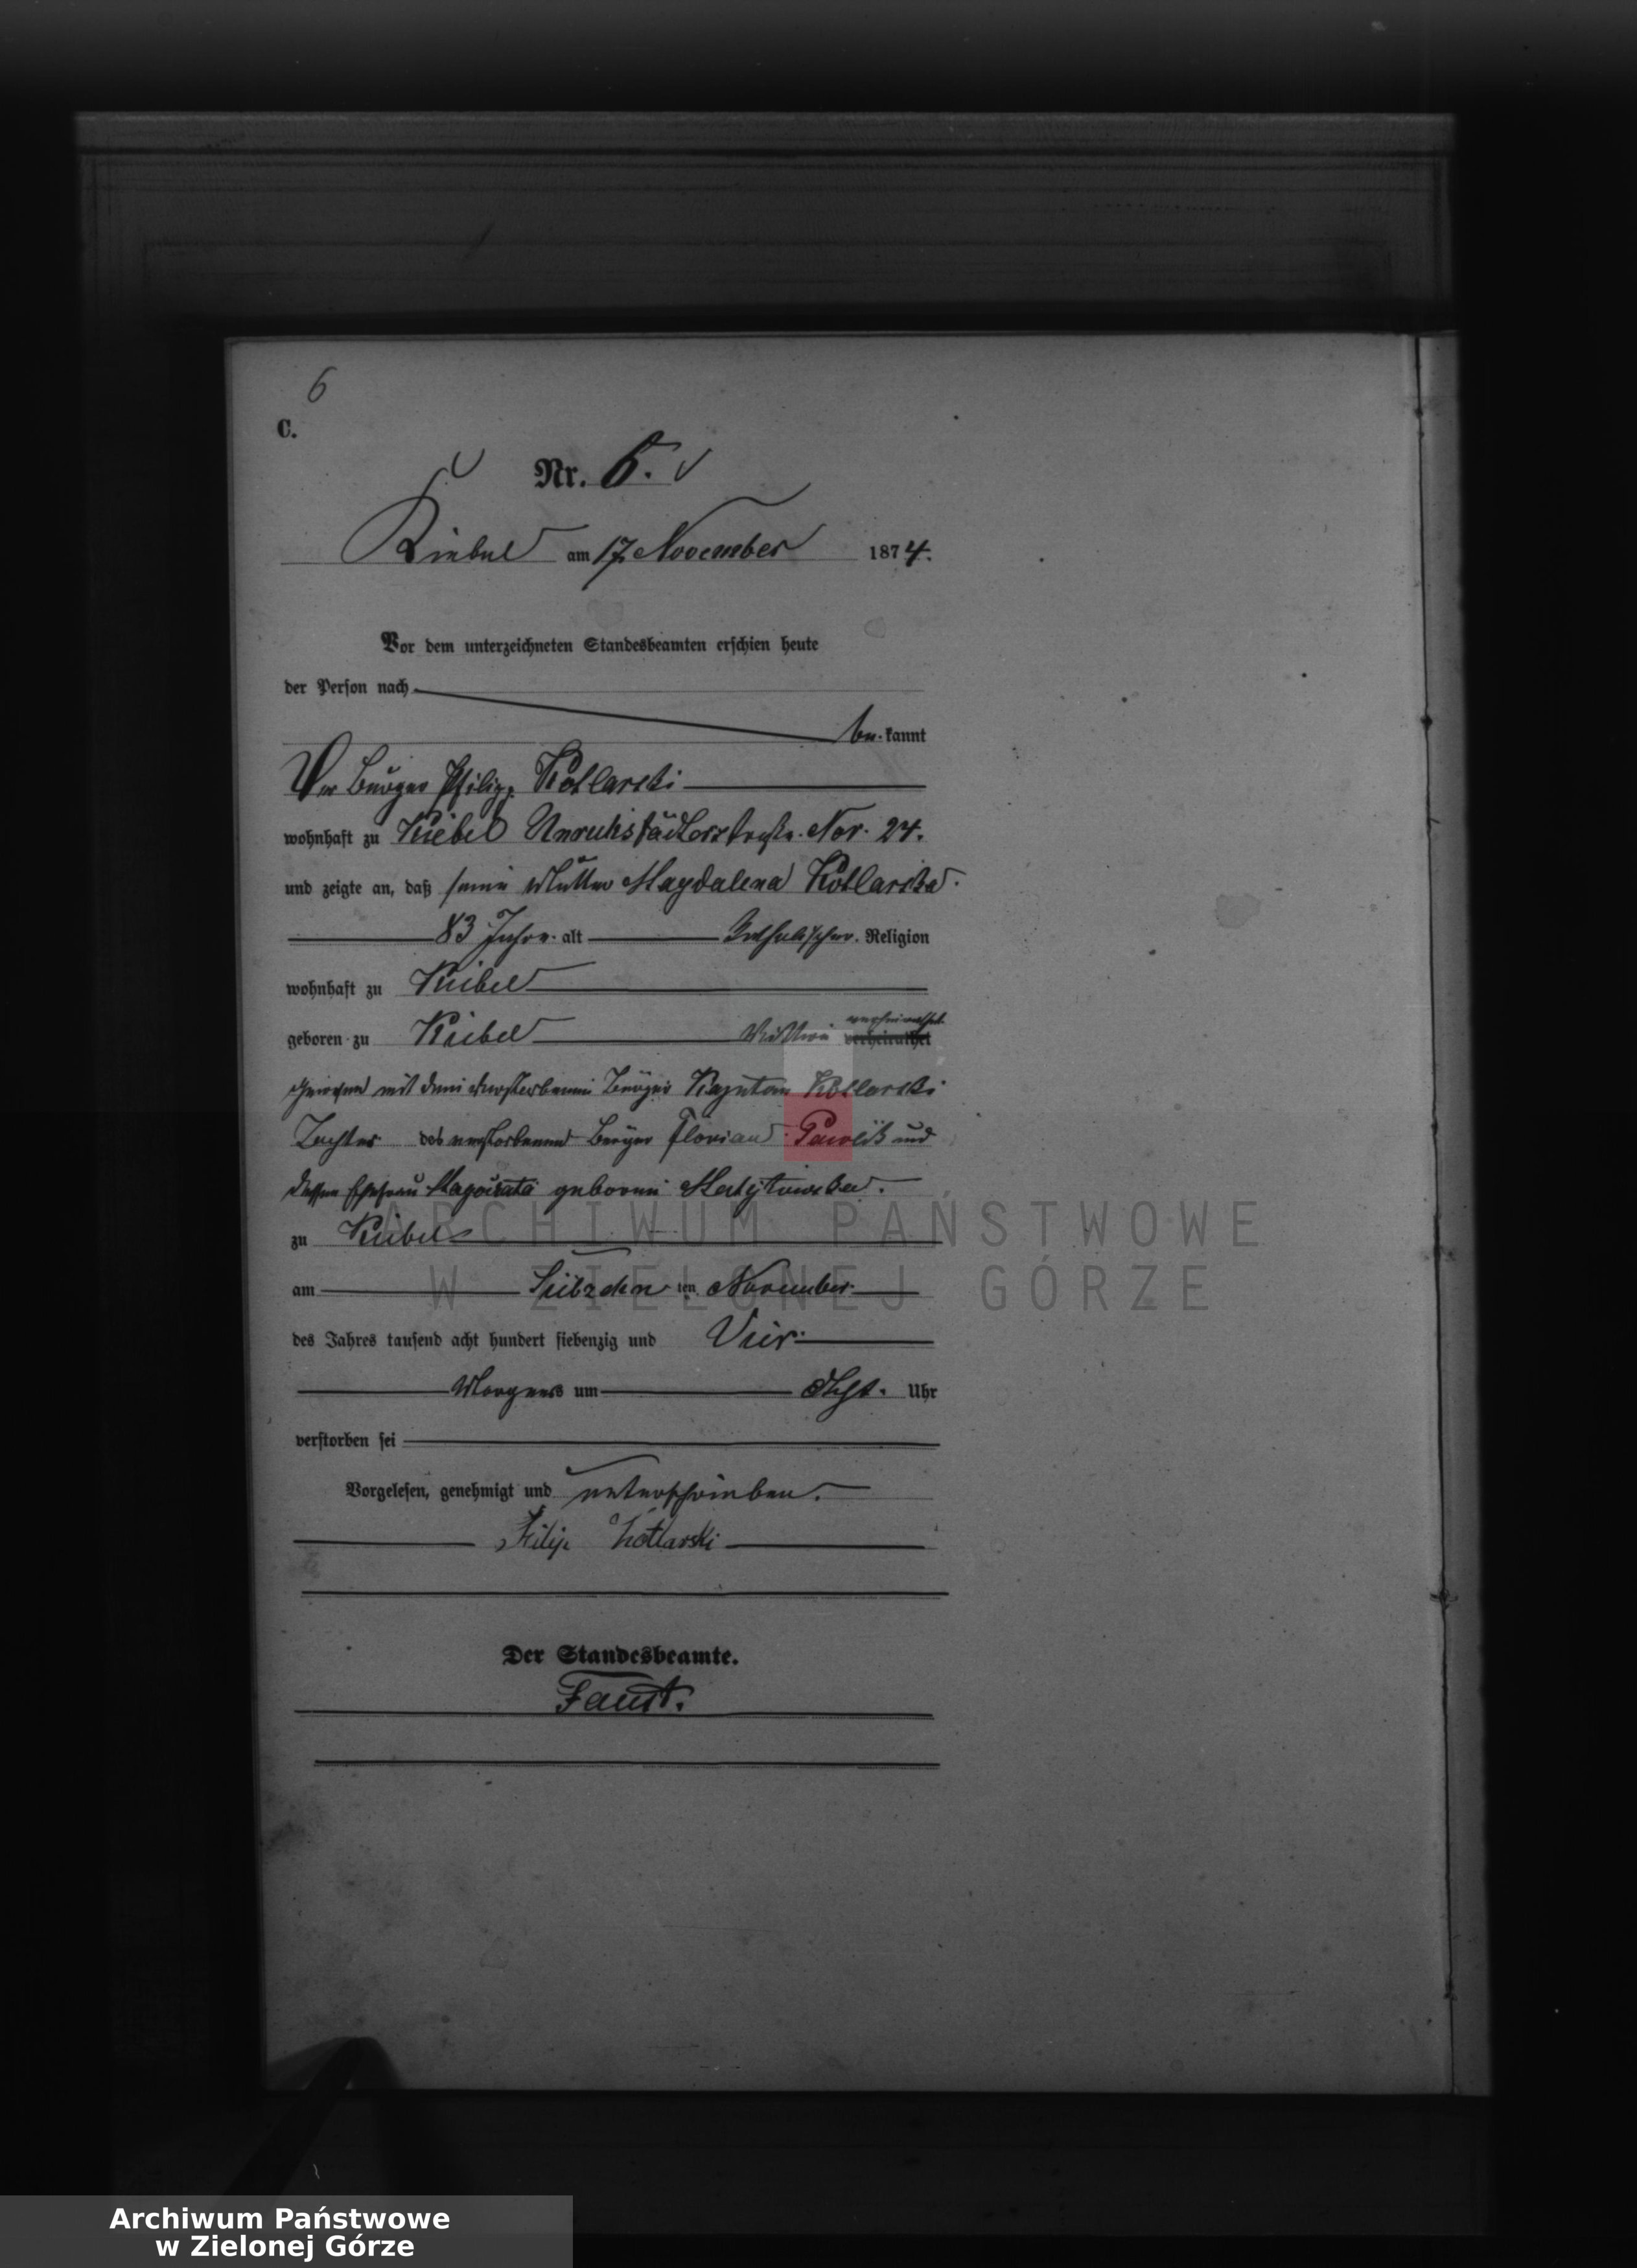 6
C.
Nr. 6.
Kiebel am 17 November 1874.
Vor dem unterzeichneten Standesbeamten erschien heute
der Person nach
be-kannt
Der Bürger Philipp Kotlarski
wohnhaft zu Kiebel Unruhstädterstraße. Nor. 24.
und zeigte an, daß seine Mutter Magdalena Kotlarska.
83 Jahre alt katholischer Religion
wohnhaft zu Kiebel
geboren zu Kiebel Wittwe verheirathet
gewesen mit dem verstorbenen Bürger Kajetan Kotlarski
Tochter des verstorbenen Bürger Florian Pawlik und
dessen Ehefrau geborene
zu Kiebel
am Siebzehn ten November
des Jahres tausend acht hundert siebenzig und Vier
Morgens um Acht. Uhr
verstorben sei
Vorgelesen, genehmigt und unterschrieben.
Filip Kotlarski
Der Standesbeamte.
Faust.
ARCHIWUM PAŃSTWOWE
W ZIELONEJ GÓRZE
Archiwum Państwowe
w Zielonej Górze